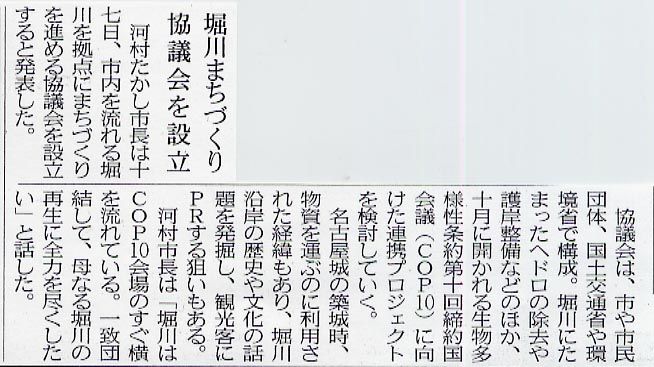 堀川まちづくり
協議会を設立
　河村たかし市長は十
七日、市内を流れる堀
川を拠点にまちづくり
を進める協議会を設立
すると発表した。
　協議会は、市や市民
団体、国土交通省や環
境省で構成。堀川にた
まったヘドロの除去や
護岸整備などのほか、
十月に開かれる生物多
様性条約第十回締約国
会議（COP10）に向
けた連携プロジェクト
を検討していく。
　名古屋城の築城時、
物資を運ぶのに利用さ
れた経緯もあり、堀川
沿岸の歴史や文化の話
題を発掘し、観光客に
PRする狙いもある。
　河村市長は「堀川は
COP10会場のすぐ横
を流れている。一致団
結して、母なる堀川の
再生に全力を尽くした
い」と話した。